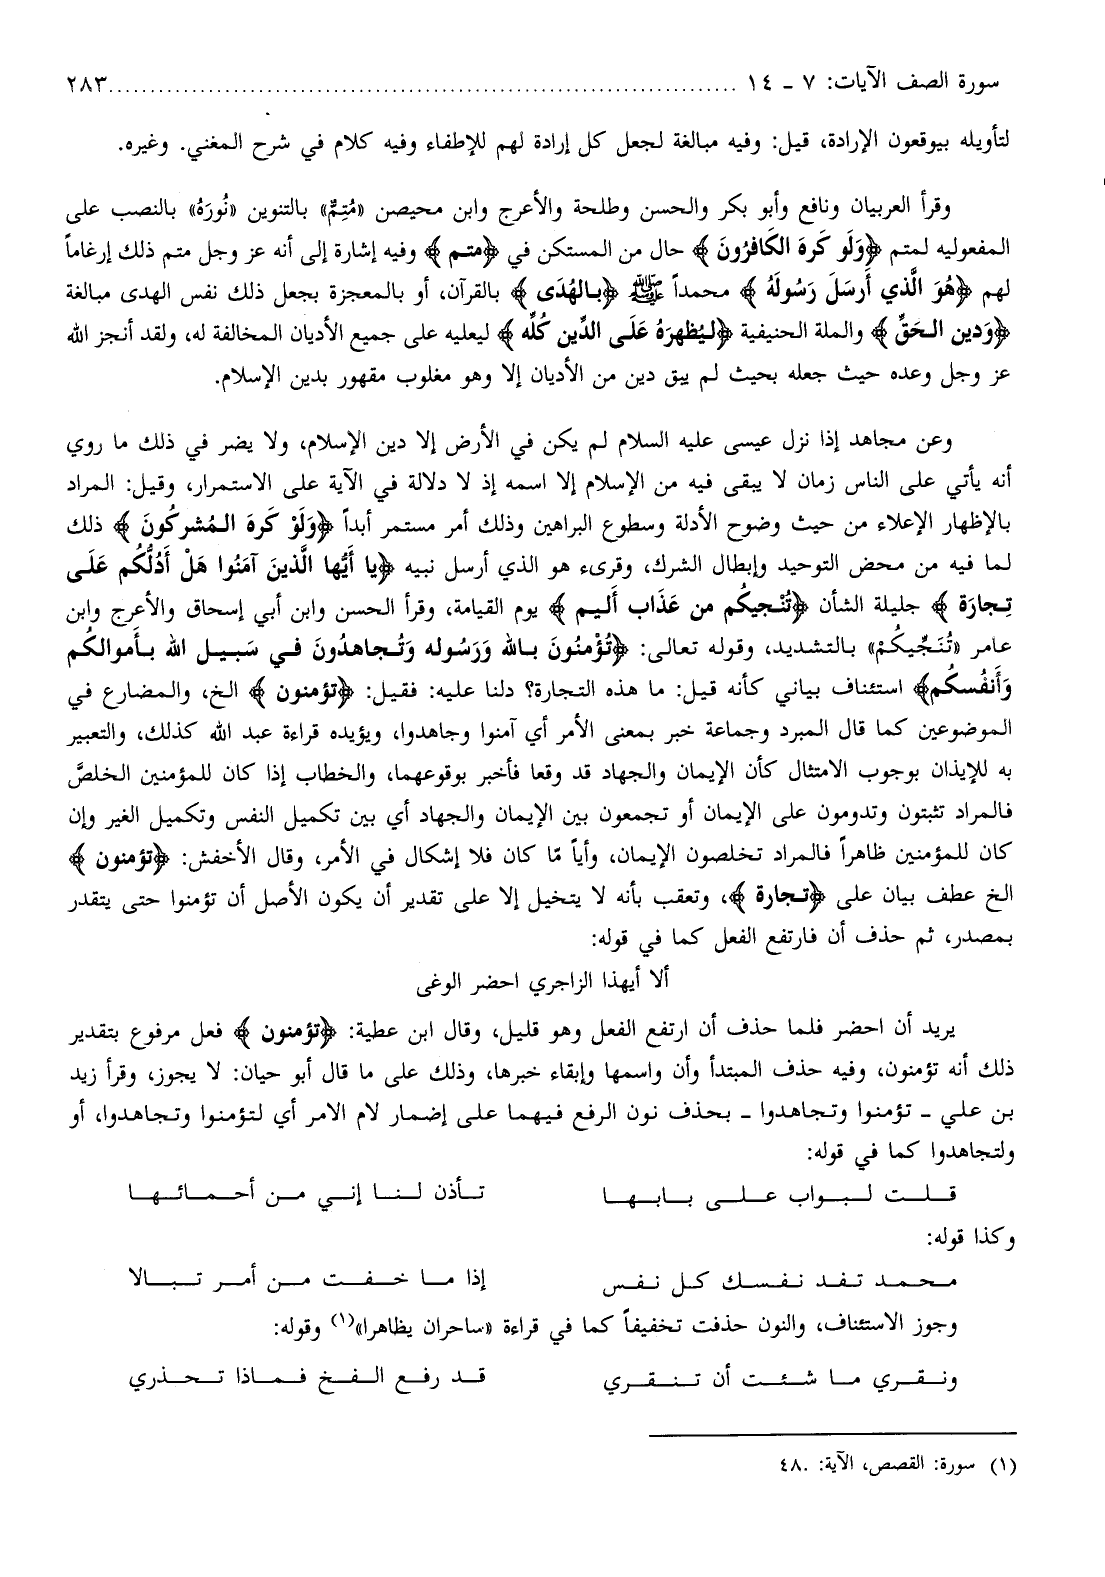 سورة الصف الآيات: ٧ ـ ١٤ ........................................................................................ ٢٨٣
لتأويله بيوقعون الإرادة، قيل: وفيه مبالغة لجعل كل إرادة لهم للإطفاء وفيه كلام في شرح المغني. وغيره.
وقرأ العربيان ونافع وأبو بكر والحسن وطلحة والأعرج وابن محيصن «مُتِمٌّ» بالتنوين «نُورَهُ» بالنصب على
المفعوليه لمتم ﴿وَلَو كَرهَ الكَافرُونَ ﴾ حال من المستكن في ﴿متم ﴾ وفيه إشارة إلى أنه عز وجل متم ذلك إرغاماً
لهم ﴿هُوَ الَّذي أَرسَلَ رَسُولَهُ ﴾ محمداً ﷺ ﴿بالهُدَى ﴾ بالقرآن، أو بالمعجزة بجعل ذلك نفس الهدى مبالغة
﴿وَدين الحَقِّ ﴾ والملة الحنيفية ﴿ليُظهرَهُ عَلَى الدِّين كُلِّه ﴾ ليعليه على جميع الأديان المخالفة له، ولقد أنجز الله
عز وجل وعده حيث جعله بحيث لم يبق دين من الأديان إلا وهو مغلوب مقهور بدين الإسلام.
وعن مجاهد إذا نزل عيسى عليه السلام لم يكن في الأرض إلا دين الإسلام، ولا يضر في ذلك ما روي
أنه يأتي على الناس زمان لا يبقى فيه من الإسلام إلا اسمه إذ لا دلالة في الآية على الاستمرار، وقيل: المراد
بالإظهار الإعلاء من حيث وضوح الأدلة وسطوع البراهين وذلك أمر مستمر أبداً ﴿وَلَوْ كَرهَ المُشركُونَ ﴾ ذلك
لما فيه من محض التوحيد وإبطال الشرك، وقرىء هو الذي أرسل نبيه ﴿يا أَيُّها الَّذينَ آمَنُوا هَلْ أَدُلُّكُم عَلَى
تجارَة ﴾ جليلة الشأن ﴿تُنْجيكُم من عَذَاب أَليم ﴾ يوم القيامة، وقرأ الحسن وابن أبي إسحاق والأعرج وابن
عامر «تُنَجِّيكُمْ» بالتشديد، وقوله تعالى: ﴿تُؤْمنُونَ بالله وَرَسُوله وَتُجاهدُونَ في سَبيل الله بأَموالكُم
وَأَنفُسكُم﴾ استئناف بياني كأنه قيل: ما هذه التجارة؟ دلنا عليه: فقيل: ﴿تؤمنون ﴾ الخ، والمضارع في
الموضوعين كما قال المبرد وجماعة خبر بمعنى الأمر أي آمنوا وجاهدوا، ويؤيده قراءة عبد الله كذلك، والتعبير
به للإيذان بوجوب الامتثال كأن الإيمان والجهاد قد وقعا فأخبر بوقوعهما، والخطاب إذا كان للمؤمنين الخلصَّ
فالمراد تثبتون وتدومون على الإيمان أو تجمعون بين الإيمان والجهاد أي بين تكميل النفس وتكميل الغير وإن
كان للمؤمنين ظاهراً فالمراد تخلصون الإيمان، وأياً مّا كان فلا إشكال في الأمر، وقال الأخفش: ﴿تؤمنون ﴾
الخ عطف بيان على ﴿تجارة ﴾، وتعقب بأنه لا يتخيل إلا على تقدير أن يكون الأصل أن تؤمنوا حتى يتقدر
بمصدر، ثم حذف أن فارتفع الفعل كما في قوله:
ألا أيهذا الزاجري احضر الوغى
يريد أن احضر فلما حذف أن ارتفع الفعل وهو قليل، وقال ابن عطية: ﴿تؤمنون ﴾ فعل مرفوع بتقدير
ذلك أنه تؤمنون، وفيه حذف المبتدأ وأن واسمها وإبقاء خبرها، وذلك على ما قال أبو حيان: لا يجوز، وقرأ زيد
بن علي ـ تؤمنوا وتجاهدوا ـ بحذف نون الرفع فيهما على إضمار لام الامر أي لتؤمنوا وتجاهدوا، أو
ولتجاهدوا كما في قوله:
قلت لبواب على بابها تأذن لنا إني من أحمائها
وكذا قوله:
محمد تفد نفسك كل نفس إذا ما خفت من أمر تبالا
وجوز الاستئناف، والنون حذفت تخفيفاً كما في قراءة «ساحران يظاهرا»(١) وقوله:
ونقري ما شئت أن تنقري قد رفع الفخ فماذا تحذري
(١) سورة: القصص، الآية: ٤٨.